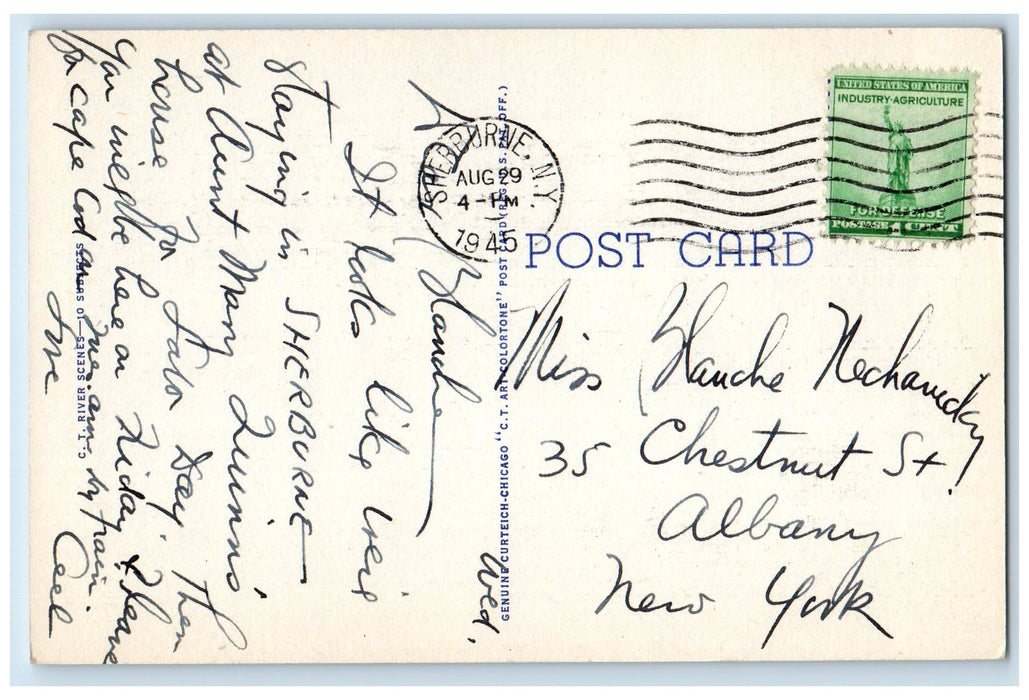 Wed.
Blanche
It looks like we're
staying in SHERBURNE —
at Aunt Mary Quinn's
house for Labor Day. Then
you might be here on Friday & leave
for Cape Cod on Tues. am. by train.
Love
Ceil
C. T. RIVER SCENES—10 SUBJECTS
GENUINE CURTEICH-CHICAGO "C.T. ART-COLORTONE" POST CARD (REG. U.S. PAT. OFF.)
SHERBURNE, N.Y.
AUG 29
4-PM
1945
UNITED STATES OF AMERICA
INDUSTRY·AGRICULTURE
FOR DEFENSE
POST CARD
Miss Blanche
35 Chestnut St.
Albany
New York